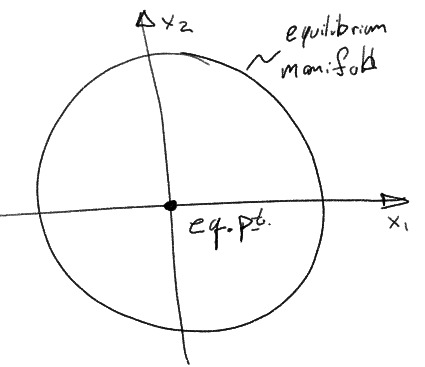 x2
equilibrium
manifold
eq.pt.
x1